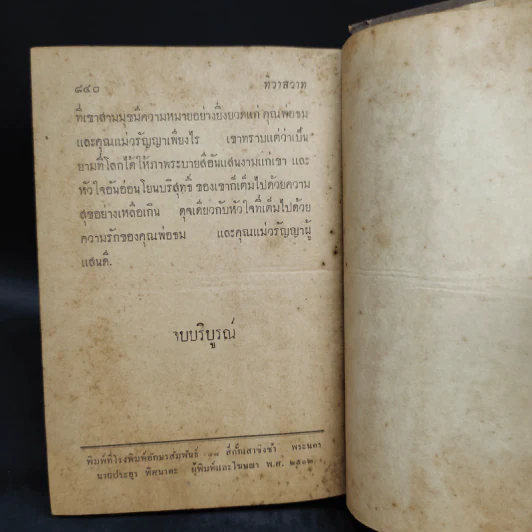 ๘๔๐ ทิวาสวาท
ที่เขาสามมุขมีความหมายอย่างยิ่งยวดแก่ คุณพ่อชม
และคุณแม่วรัญญาเพียงไร เขาทราบแต่ว่าเป็น
ยามที่โลกได้ให้ภาพระบายสีอันแสนงามแก่เขา และ
หัวใจอันอ่อนโยนบริสุทธิ์ ของเขาก็เต็มไปด้วยความ
สุขอย่างเหลือเกิน ดุจเดียวกับหัวใจที่เต็มไปด้วย
ความรักของคุณพ่อชม และคุณแม่วรัญญาผู้
แสนดี.
จบบริบูรณ์
พิมพ์ที่โรงพิมพ์อักษรสัมพันธ์ สี่กั๊กเสาชิงช้า พระนคร
นายประยูร พิศนาคะ ผู้พิมพ์และโฆษณา พ.ศ. ๒๕๐๒